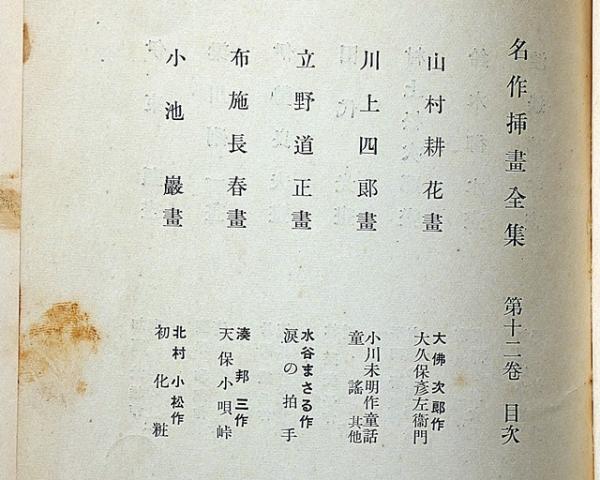 名作挿畫全集 第十二卷 目次
山村耕花畫
大佛次郎作
大久保彥左衞門
川上四郞畫
小川未明作童話
童謠其他
立野道正畫
水谷まさる作
淚の拍手
布施長春畫
湊邦三作
天保小唄峠
小池巖畫
北村小松作
初化粧